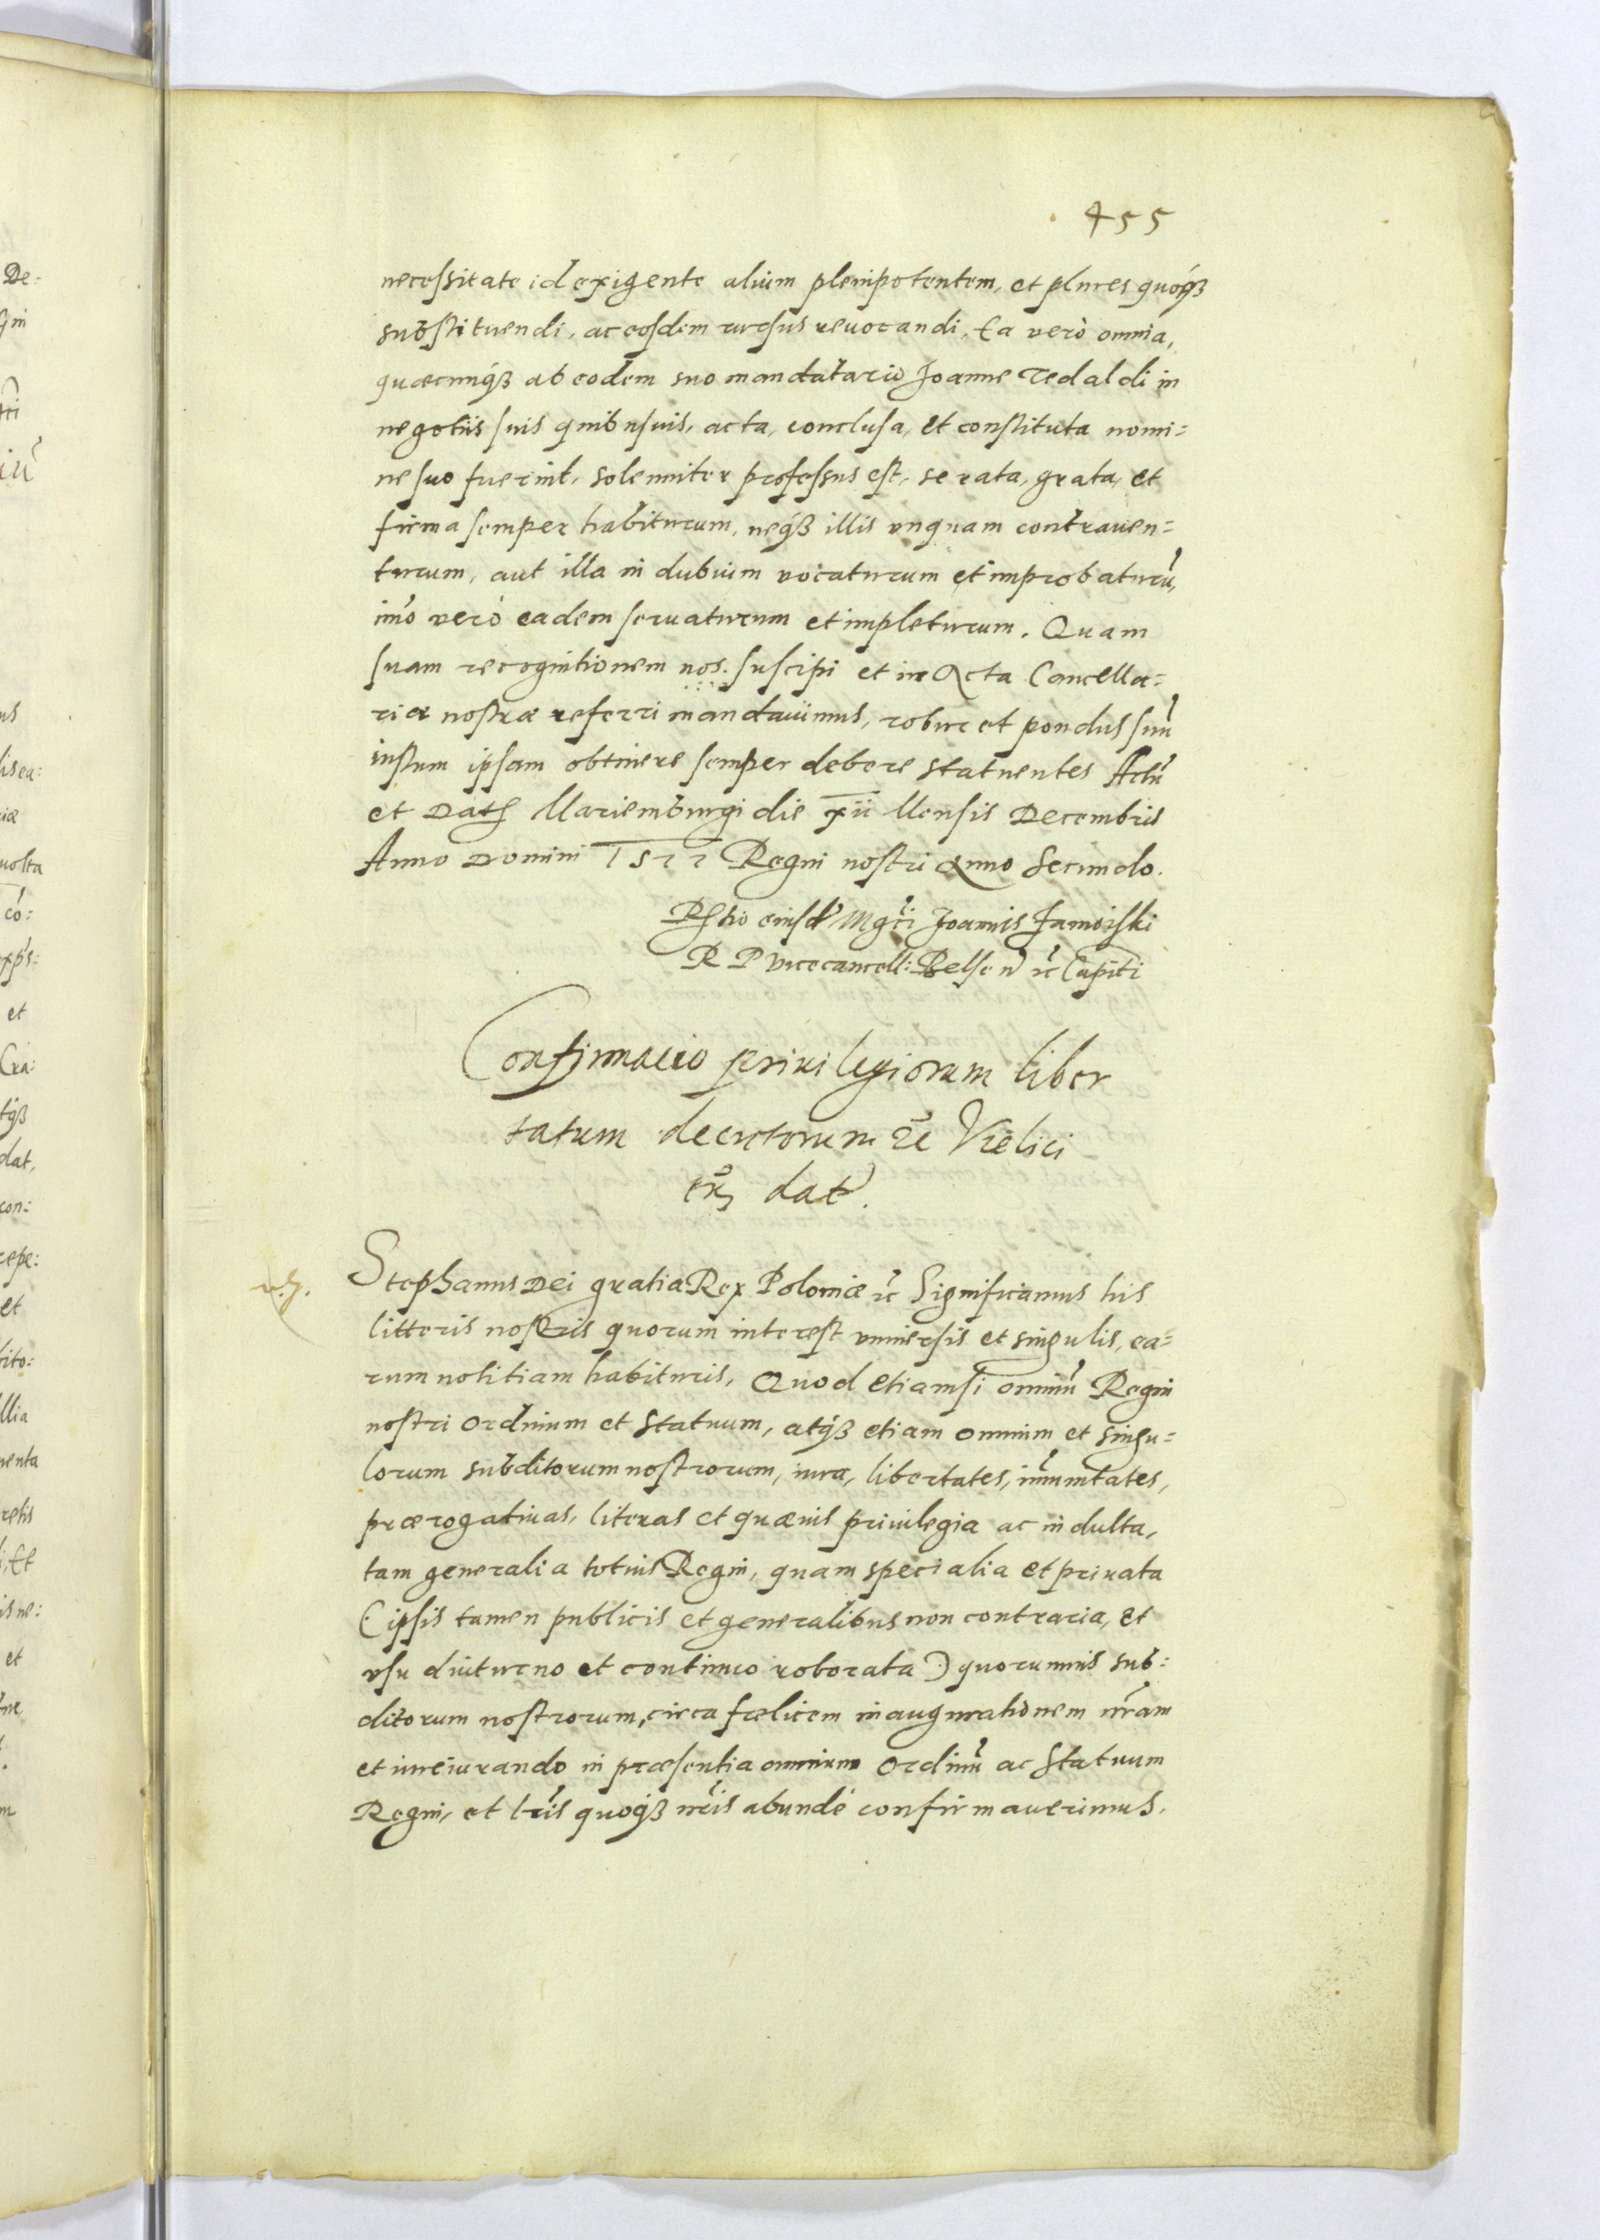 455
necessitate id exigente alium plenipotentem, et plures quoqꝫ
substituendi, ac eosdem rursus reuocandi, Ea verò omnia,
quæcunqꝫ ab eodem suo mandatario Joanne Tedaldi in
negotiis suis quibusuis, acta, conclusa, et constituta nomi=
ne suo fuerint, solenniter professus est, se rata, grata, et
firma semper habiturum, neqꝫ illis vnquam contrauen=
turum, aut illa in dubium vocaturum et improbaturũ,
imò verò eadem seruaturum et impleturum. Quam
suam recognitionem nos suscipi et in Acta Cancella=
riæ nostræ referri mandauimus, robur et pondus suũ
iustum ipsam obtinere semper debere statuentes Actũ
et Dat Mariemburgi die xii Mensis Decembris
Anno Domini 1577 Regni nostri Anno Secundo.
Joannis Zamoiski
R P Vicecancell: Belsen ec Capiti
Confirmacio priuilegiorum liber
tatum decretorum
dat
Stephanus Dei gratia Rex Poloniæ ec Significamus his
litteris nostris quorum interest vniuersis et singulis, ea=
rum notitiam habituris, Quod etiamsi omniũ Regni
nostri Ordinum et Statuum, atqꝫ etiam omnium et singu=
lorum subditorum nostrorum, iura, libertates, im̃unitates,
prærogatiuas, literas et quæuis priuilegia ac indulta,
tam generalia totius Regni, quam specialia et priuata
(ipsis tamen publicis et generalibus non contraria, et
vsu diuturno et continuo roborata) quorumuis sub=
ditorum nostrorum, circa fœlicem inaugurationem nr̃am
et iureiurando in præsentia omnium Ordinũ ac Statuum
Regni, et lr̃is quoqꝫ nr̃is abundè confirmauerimus.